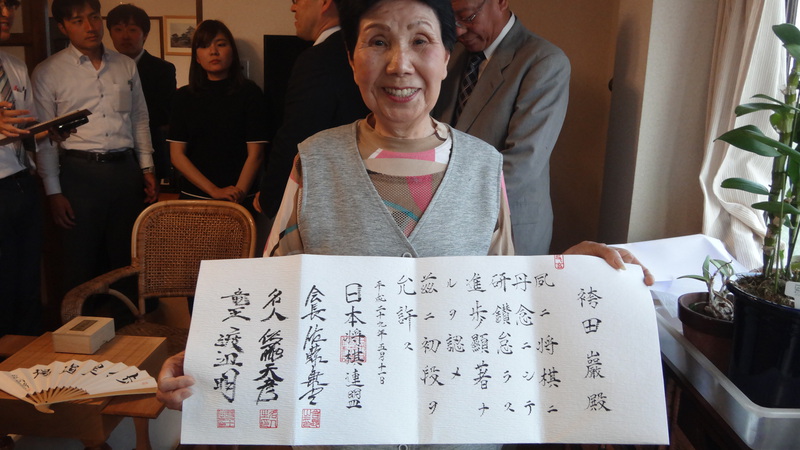 袴田 巖 殿
夙ニ将棋ニ
丹念ニシテ
研鑽怠ラス
進歩顯著ナ
ルヲ認メ
茲ニ初段ヲ
允許ス
平成二十九年五月十一日
日本将棋連盟
会長 佐藤康光
名人 佐藤天彦
竜王 渡辺明